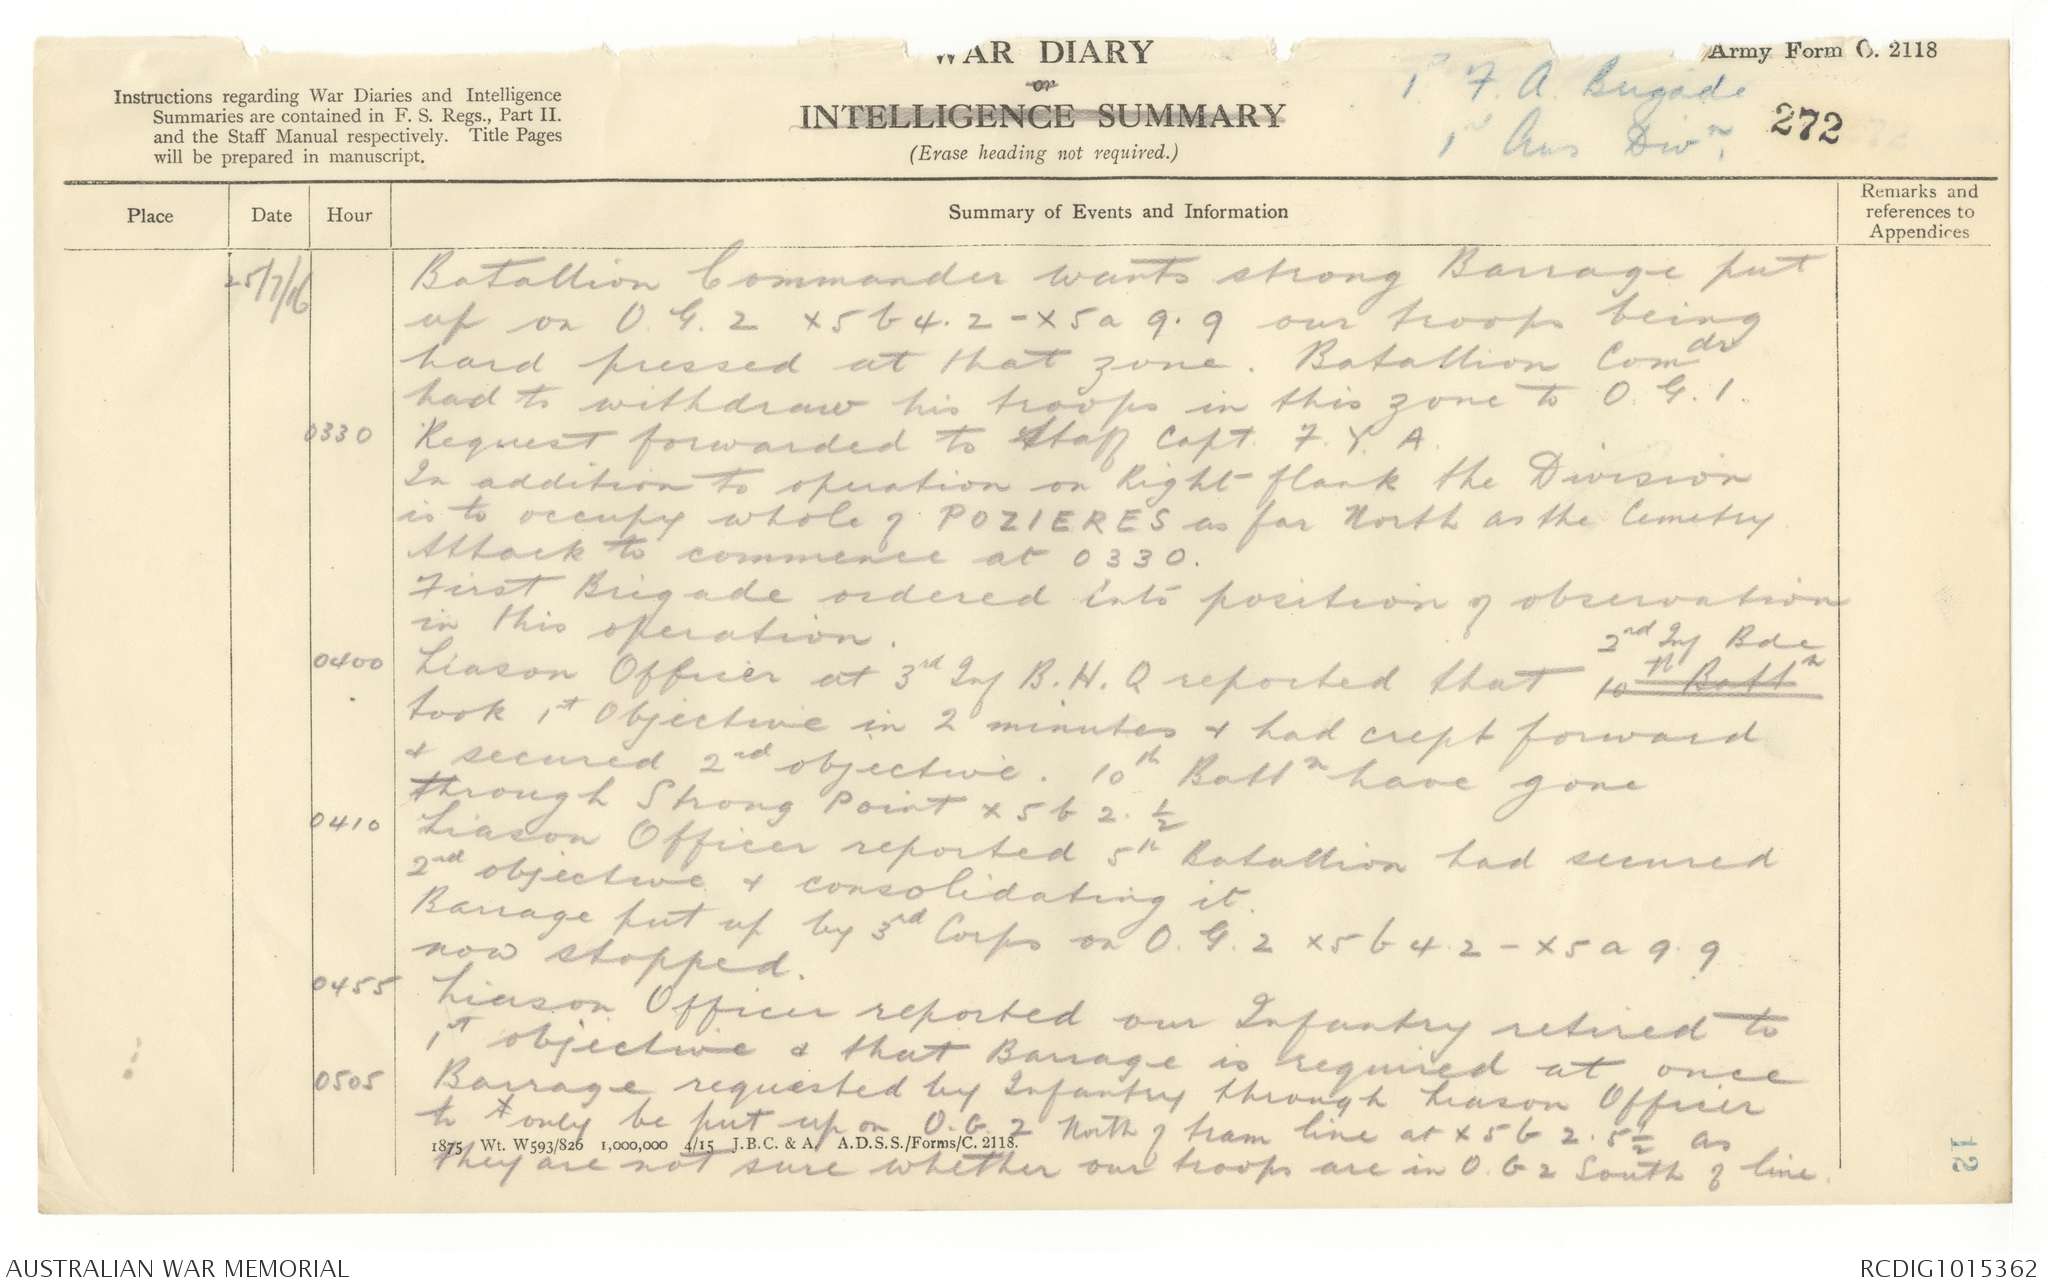 WAR DIARY
or
INTELLIGENCE SUMMARY
(Erase heading not required.)
Army Form C. 2118
Instructions regarding War Diaries and Intelligence
Summaries are contained in F. S. Regs., Part II.
and the Staff Manual respectively. Title Pages
will be prepared in manuscript.
1st F. A. Brigade
1st Aus Divn.
272
Place Date Hour Summary of Events and Information Remarks and references to Appendices
25/7/16 Batallion Commander wants strong Barrage put
up on O.G. 2 x5b4.2 - x5a 9.9 our troops being
hard pressed at that zone. Batallion Comdr
had to withdraw his troops in this zone to O.G.1.
0330 Request forwarded to Staff Capt. F.Y.A.
In addition to operation on Right flank the Division
is to occupy whole of POZIERES as far North as the Cemetry
Attack to commence at 0330.
First Brigade ordered into position of observation
in this operation.
2nd Inf Bde
0400 Liason Officer at 3rd Inf B.H.Q reported that 10th Battn
took 1st Objective in 2 minutes + had crept forward
+ secured 2nd objective. 10th Battn have gone
through Strong Point x5b2.½
0410 Liason Officer reported 5th Batallion had secured
2nd objective + consolidating it.
Barrage put up by 3rd Corps on O.G.2 x5b4.2 - x5a 9.9
now stopped.
0455 Liason Officer reported our Infantry retired to
1st objective & that Barrage is required at once
0505 Barrage requested by Infantry through Liason Officer
to only be put up on O.G. 2 North of tram line at x5b2.5½ as
they are not sure whether our troops are in O.G 2 South of line.
1875 Wt. W593/826 1,000,000 4/15 J.B.C. & A. A.D.S.S./Forms/C. 2118.
12
AUSTRALIAN WAR MEMORIAL
RCDIG1015362